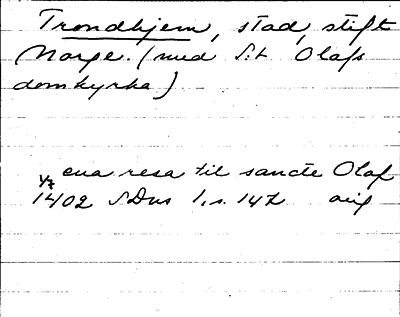 Trondhjem, stad, stift
Norge. (med S:t Olafs
domkyrka)
ena resa til sancte Olaf
1/7
1402 SDns 1, s. 147 orig